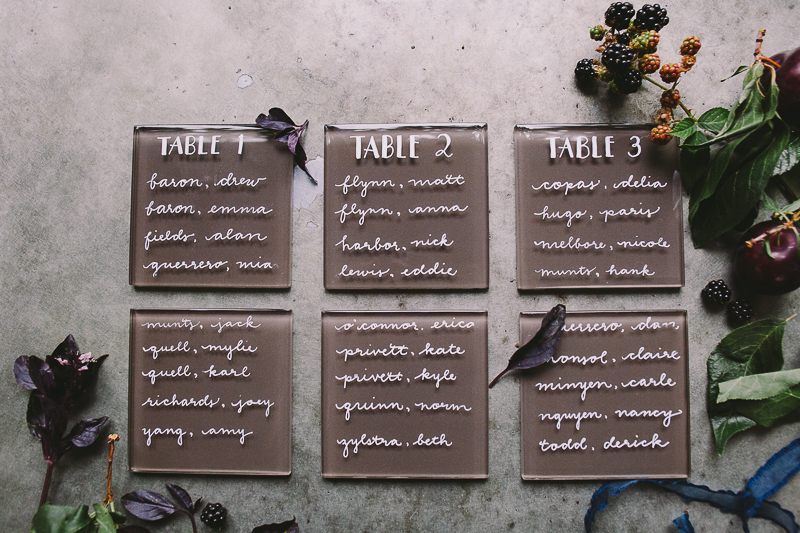 TABLE 1
baron, drew
baron, emma
fields, alan
guerrero, mia
munts, jack
quell, mylie
quell, karl
richards, joey
yang, amy
TABLE 2
flynn, matt
flynn, anna
harbor, nick
lewis, eddie
o'connor, erica
privett, kate
privett, kyle
quinn, norm
zylstra, beth
TABLE 3
copas, delia
hugo, paris
melbore, nicole
munts, hank
dan
claire
minyen, carle
nguyen, nancy
todd, derick